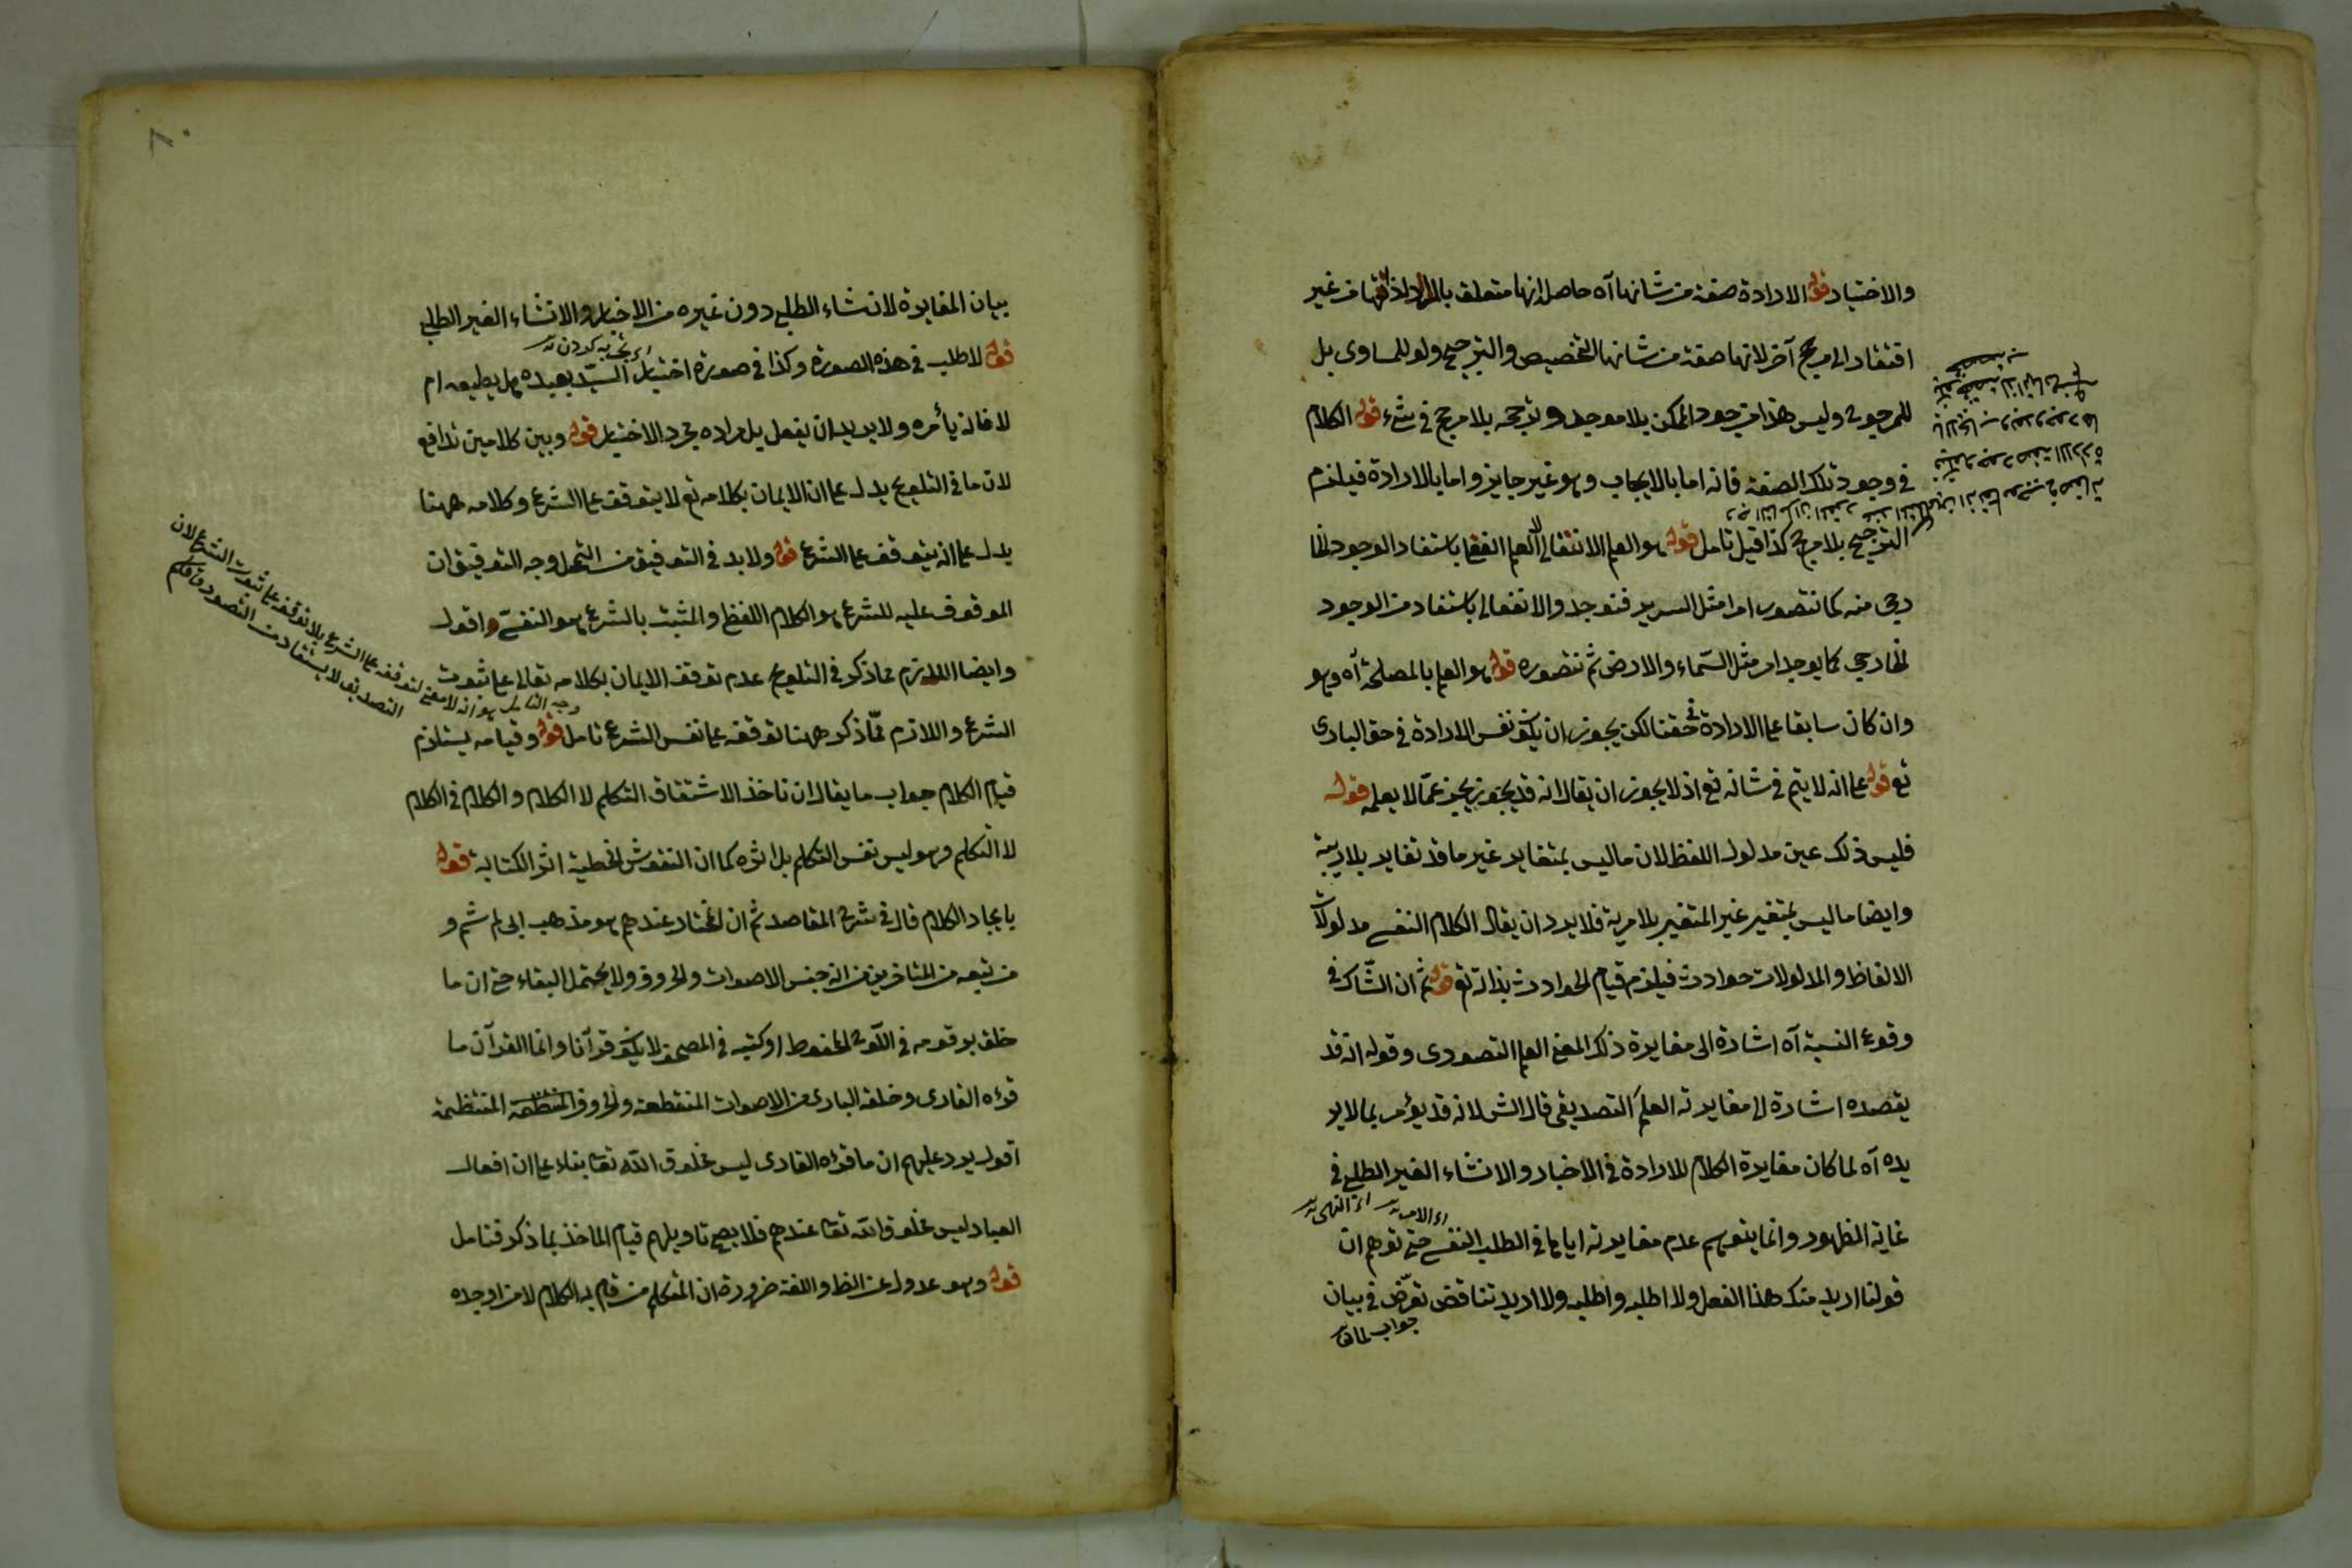 والاختيار قوله الارادة صفة من شانها آه حاصله انها متعلق بالمراد لذاتها من غير
افتقار الى مرجح آخر لانها صفة من شانها التخصيص والترجيح ولو للمساوى بل
للمرجوح وليس هذا من وجود الممكن بلا موجد وترجحه بلا مرجح فى شئ قوله الكلام
فى وجود تلك الصفة فانه اما بالايجاب وهو غير جايز واما بالارادة فيلزم
الترجيح بلا مرجح كذا قيل تامل قوله هو العلم الانفعالى لا العلم الفعلى باستفاد الوجود الخا
رجى منه كما نتصور امرا مثل السرير فنوجد والانفعالى باستفاد من الوجود
الخارجى كما يوجد امر مثل السماء والارض ثم نتصوره قوله هو العلم بالمصلحة آه وهو
وان كان سابقا على الارادة فى حقنا لكن يجوز ان يكون نفس الارادة فى حق البارى
تع قوله على انه لا يتم فى شانه تع اذ لا يجوز ان يقال انه قد يخبر عمّا لا يعلمه قوله
فليس ذلك عين مدلول اللفظ لان ما ليس بمتغاير غير ما قد تغاير بلا ريبة
وايضا ما ليس بمتغير غير المتغير بلا مرية فلا يرد ان يقال الكلام النفسى مدلولات
الالفاظ والمدلولات حوادث فيلزم قيام الحوادث بذاته تع قوله ثم ان الشّاك فى
وقوع النسبة آه اشارة الى مغايرة ذلك المعنى العلم التصورى وقوله انه قد
يقصده اشارة الى مغايرته العلم التصديقى قال الش لانه قد يؤمر بما لا ير
يده آه لما كان مغايرة الكلام للارادة فى الاخبار والانشاء الغير الطلبى فى
اى الامر اى النهى
غاية الظهور وانما يتوهم عدم مغايرته اياها فى الطلب النفسى حتى توهم ان
قولنا اريد منك هذا الفعل ولا اطلبه واطلبه ولا اريد تناقض تعرّض فى بيان
جواب لما
بيان المغايرة لانشاء الطلبى دون غيره من الاخبار والانشاء الغير الطلبى
قوله لا طلب فى هذه الصورة وكذا فى صورة اختبار السيّد بعبده هل يطيعه ام
لا فانه يأمره ولا يريد ان يفعل بل مراده مجرد الاختبار قوله وبين كلامين تدافع
لان ما فى التلويح يدل على ان الايمان بكلامه تع لا يتوقف على الشرع وكلامه ههنا
يدل على انه يتوقف على الشرع قوله ولا بد فى التوفيق من التمحل وجه التوفيق ان
الموقوف عليه للشرع هو الكلام اللفظى والمثبت بالشرع هو النفسىّ واقول
وايضا اللازم مما ذكر فى التلويح عدم توقف الايمان بكلامه تعالى على ثبوت
وجه التامل هو انه لا معنى لتوقفه على الشرع بلا توقفه على ثبوت الشرع لان
التصديق لا يستفاد من التصور فافهم
الشرع واللازم ممّا ذكر ههنا توقفه على نفس الشرع تامل قوله وقيامه يستلزم
قيام الكلام جواب ما يقال ان ماخذ الاشتقاق التكلم لا الكلام والكلام فى الكلام
لا التكلم وهو ليس نفس التكلم بل اثره كما ان النقوش الخطية اثر الكتابة قوله
بايجاد الكلام قال فى شرح المقاصد ثم ان المختار عندهم هو مذهب ابى هاشم و
من تبعه من المتاخرين من انه جنس الاصوات والحروف ولا يحتمل البقاء حتى ان ما
خلق برقومه فى اللّوح المحفوظ او كتبه فى المصحف لا يكون قرآنا وانما القرآن ما
قرءه القارى وخلقه البارى من الاصوات المنقطعة والحروف المنتظمة
اقول يرد عليهم ان ما قرءه القارى ليس مخلوق الله تعا بناء على ان افعال
العباد ليس مخلوق الله تعا عندهم فلا يصح تاويلهم قيام الماخذ بما ذكر فتامل
قوله وهو عدول عن الظ واللغة ضرورة ان المتكلم من قام به الكلام لا من اوجده
٨٠